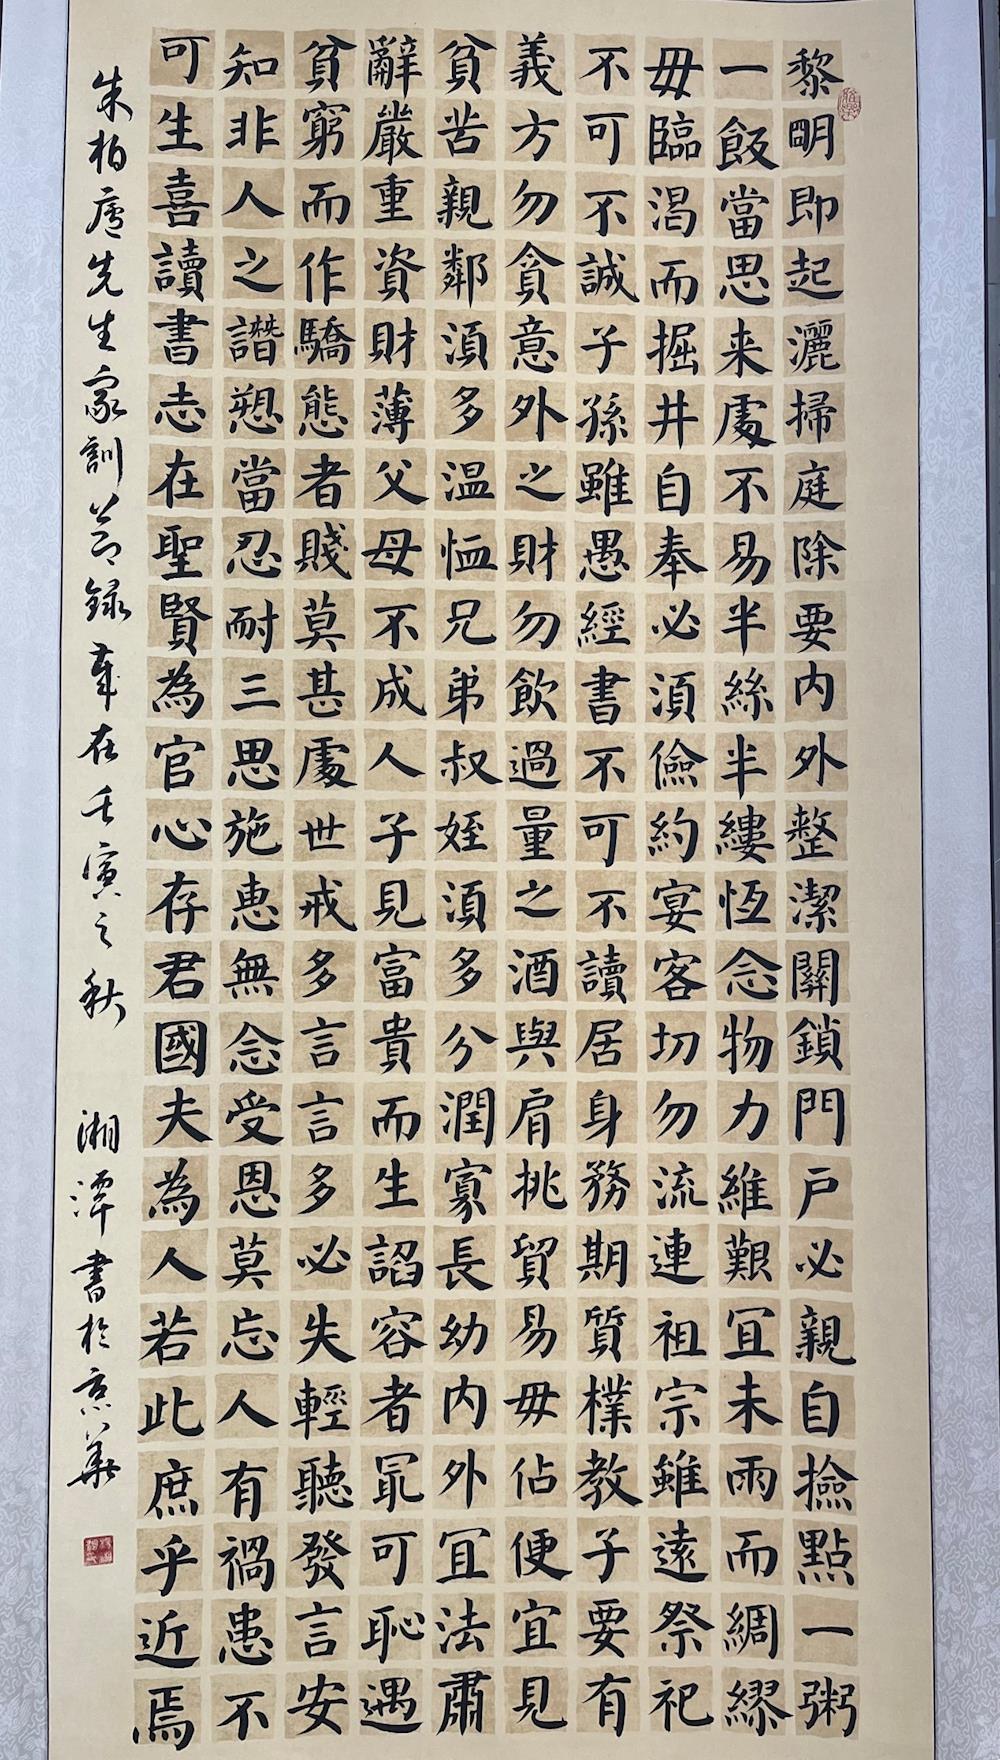 黎明即起灑掃庭除要内外整潔關鎖門戶必親自撿點一粥
一飯當思来處不易半絲半縷恆念物力維艱宜未雨而綢繆
毋臨渴而掘井自奉必須儉約宴客切勿流連祖宗雖遠祭祀
不可不誠子孫雖愚經書不可不讀居身務期質樸教子要有
義方勿貪意外之財勿飲過量之酒與肩挑貿易毋佔便宜見
貧苦親鄰須多温恤兄弟叔姪須多分潤寡長幼内外宜法肅
辭嚴重資財薄父母不成人子見富貴而生諂容者冣可恥遇
貧窮而作驕態者賤莫甚處世戒多言言多必失輕聽發言安
知非人之譖愬當忍耐三思施惠無念受恩莫忘人有禍患不
可生喜讀書志在聖賢為官心存君國夫為人若此庶乎近焉
朱柏廬先生家訓節録歲在壬寅之秋 湘潭書於京華